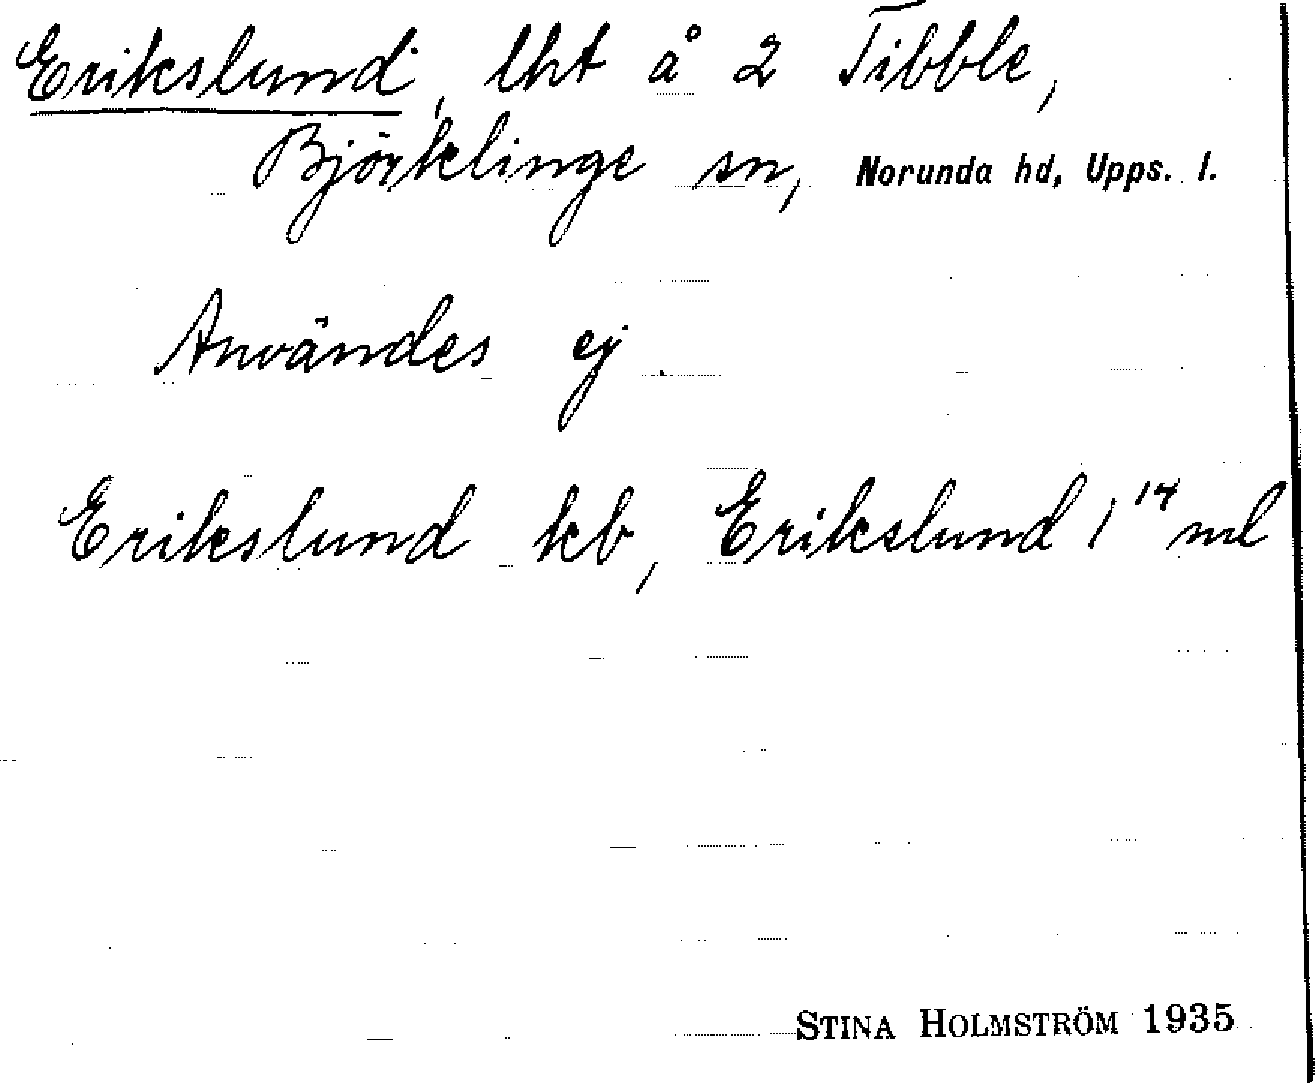 Erikslund, lht å 2 Tibble,
Björklinge sn, Norunda hd, Upps. l.
Användes ej
Erikslund kb, Erikslund 1¹⁴ ml
STINA HOLMSTRÖM 1935